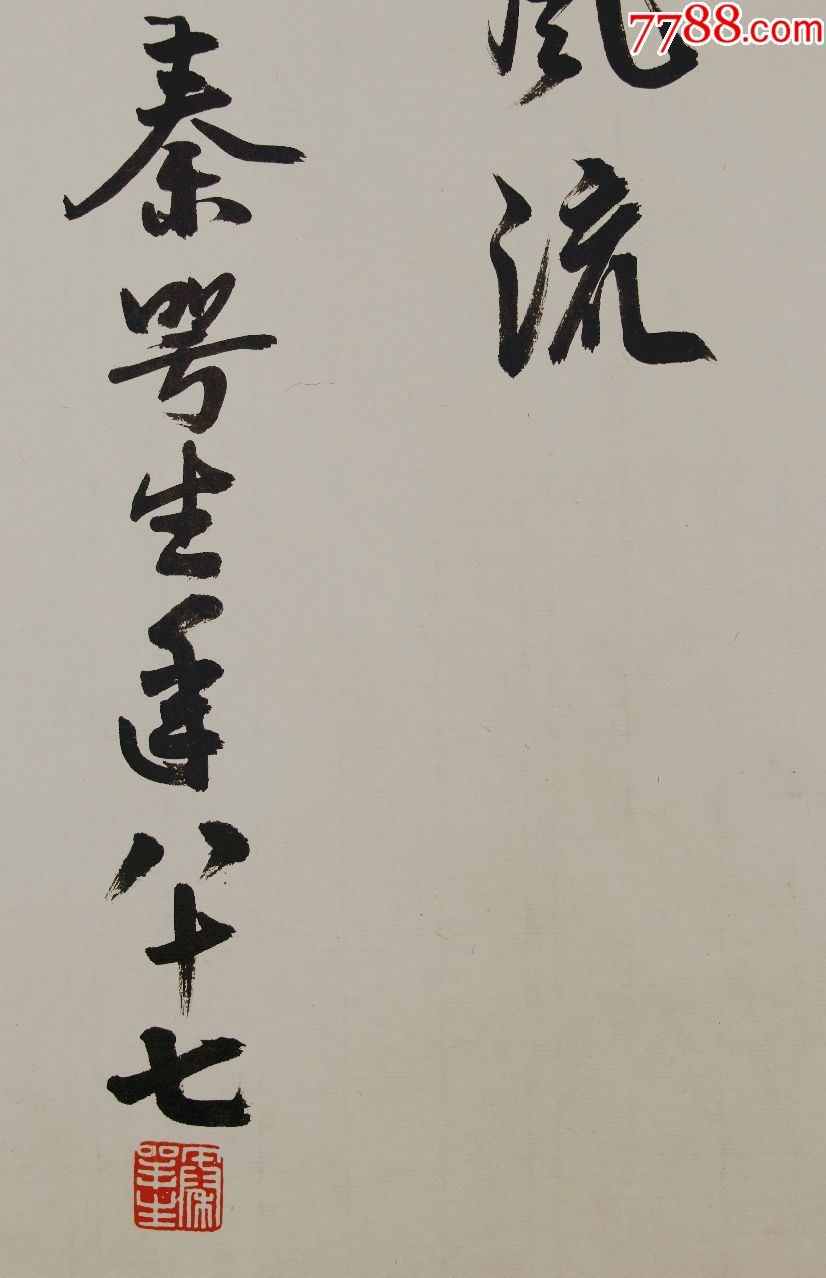 7788.com
風流
秦咢生年八十七
秦咢生